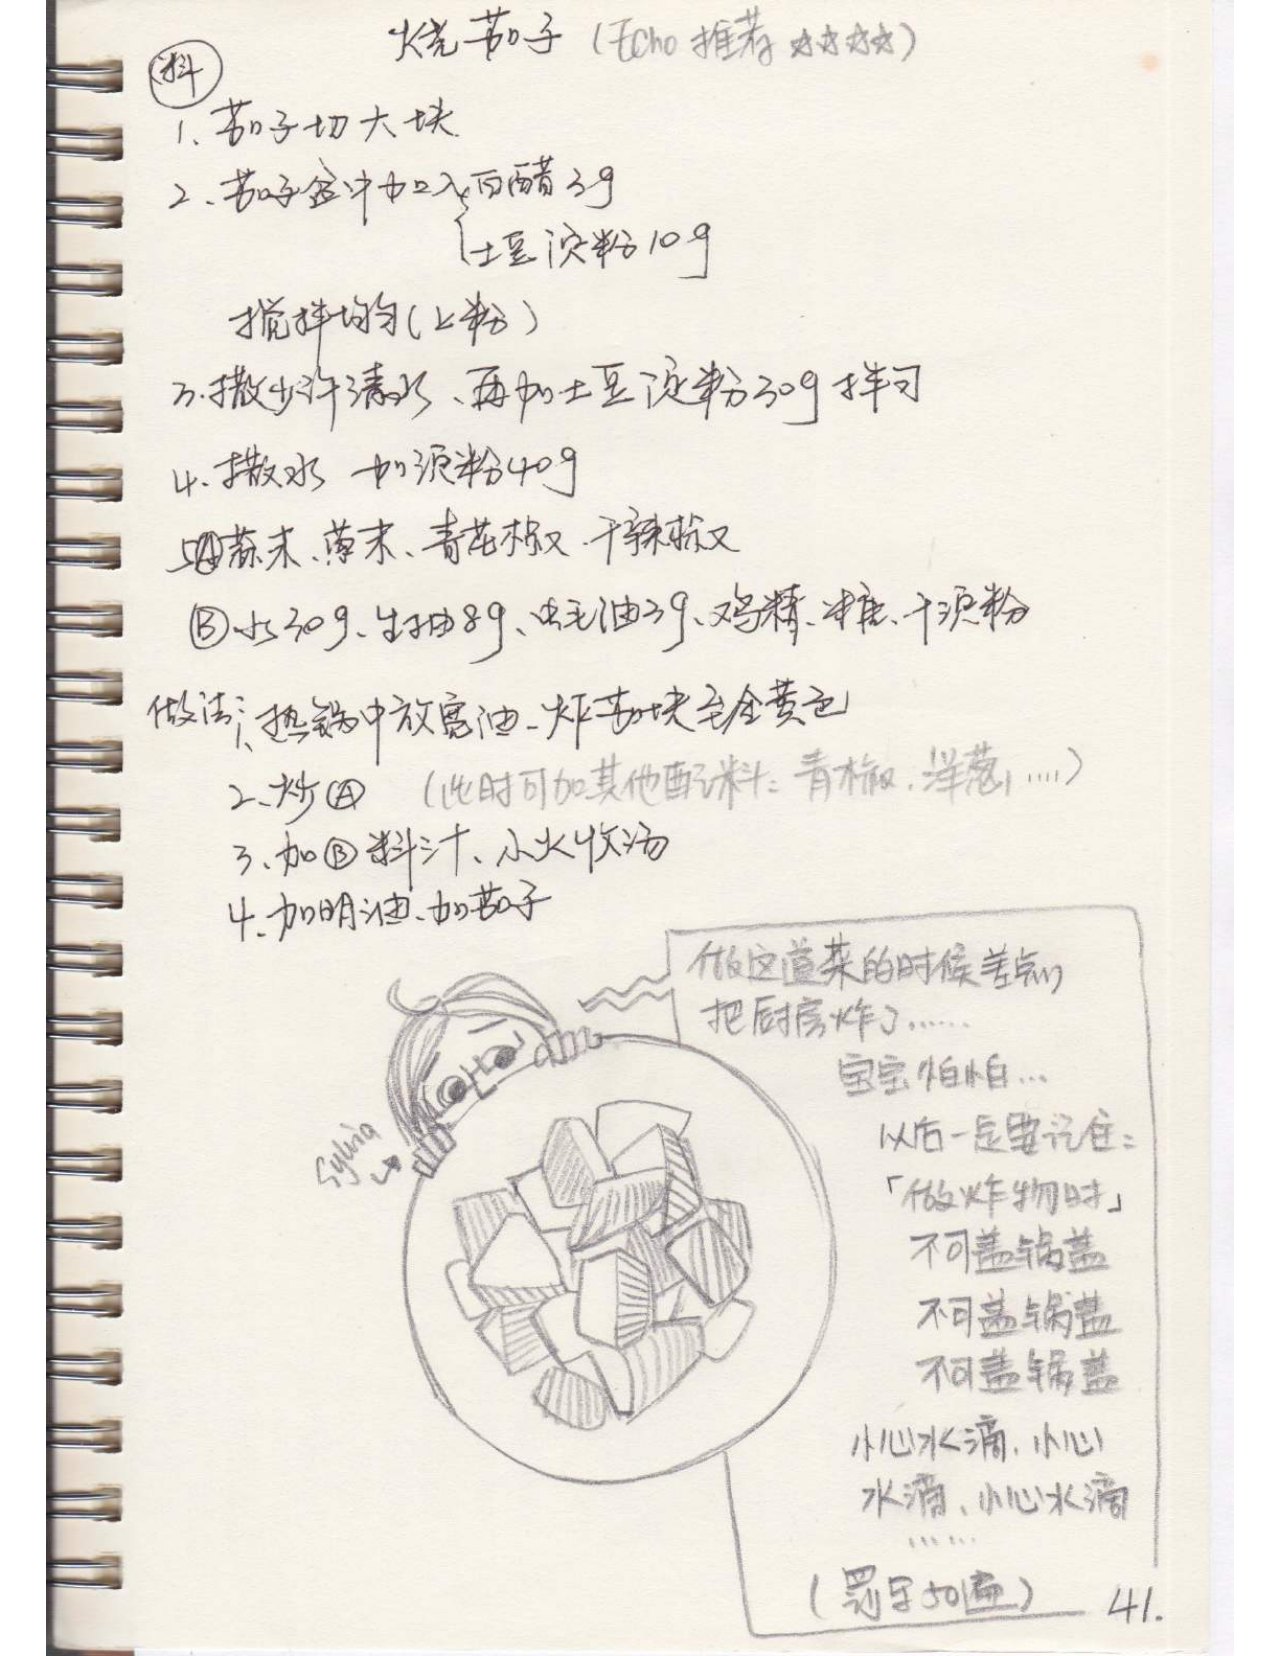 烧茄子（Echo 推荐 ☆☆☆☆）
料
1、茄子切大块
2、茄子盆中加入 白醋3g
土豆淀粉10g
搅拌均匀（上粉）
3、撒少许清水、再加土豆淀粉30g拌匀
4、撒水 加淀粉40g
5、Ⓐ蒜末、薄末、青花椒、干辣椒
Ⓑ水30g、生抽8g、蚝毛油3g、鸡精、糖、干淀粉
做法：1、热锅中放宽油、炸茄块至金黄色
2、炒Ⓐ （此时可加其他配料：青椒、洋葱……）
3、加Ⓑ料汁、小火收汤
4、加明油、加茄子
做这道菜的时候差点
把厨房炸了……
宝宝怕怕…
Sylvia
以后一定要记住：
「做炸物时」
不可盖锅盖
不可盖锅盖
不可盖锅盖
小心水滴、小心
水滴、小心水滴
……
（罚写50遍）
41.